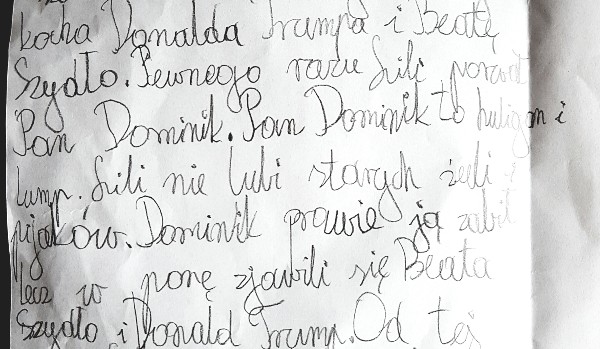 kocha Donalda Trumpa i Beatę
Szydło. Pewnego razu Lili porwał
Pan Dominik. Pan Dominik to huligan i
lump. Lili nie lubi starych żuli i
pijaków. Dominik prawie ją zabił
lecz w porę zjawili się Beata
Szydło i Donald Trump. Od tej